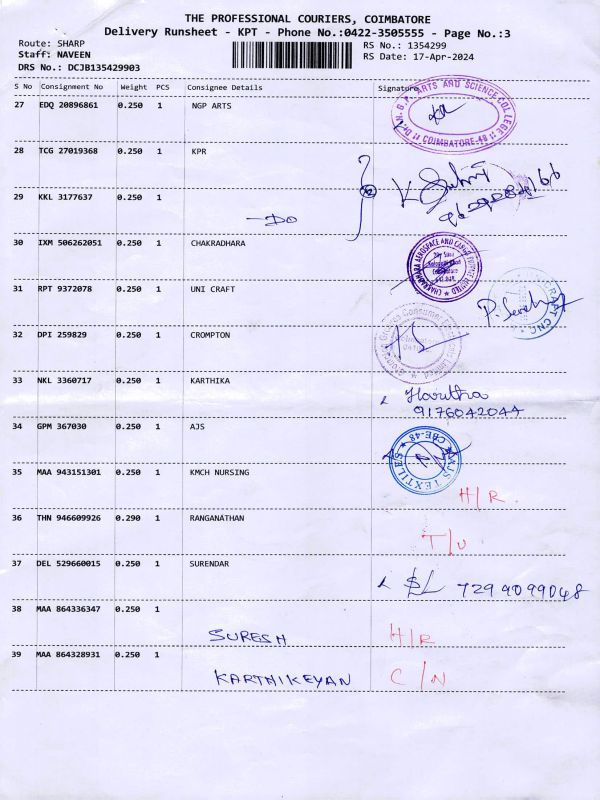 THE PROFESSIONAL COURIERS, COIMBATORE
Delivery Runsheet - KPT - Phone No.:0422-3505555 - Page No.:3
Route: SHARP RS No.: 1354299
Staff: NAVEEN RS Date: 17-Apr-2024
DRS No.: DCJB135429903
S No Consignment No Weight PCS Consignee Details Signature
27 EDQ 20896861 0.250 1 NGP ARTS
ARTS AND SCIENCE COLLEGE
COIMBATORE-48
28 TCG 27019368 0.250 1 KPR
29 KKL 3177637 0.250 1
-DO
30 IXM 506262051 0.250 1 CHAKRADHARA
CHAKRADHARA AEROSPACE AND CARGO PRIVATE LIMITED
31 RPT 9372078 0.250 1 UNI CRAFT
32 DPI 259829 0.250 1 CROMPTON
33 NKL 3360717 0.250 1 KARTHIKA
Haritha
9176042044
34 GPM 367030 0.250 1 AJS
AJS TEXTILES
CBE-48
35 MAA 943151301 0.250 1 KMCH NURSING
H/R
36 THN 946609926 0.290 1 RANGANATHAN
T/U
37 DEL 529660015 0.250 1 SURENDAR
7299099048
38 MAA 864336347 0.250 1
SURESH H/R
39 MAA 864328931 0.250 1
KARTHIKEYAN C/N